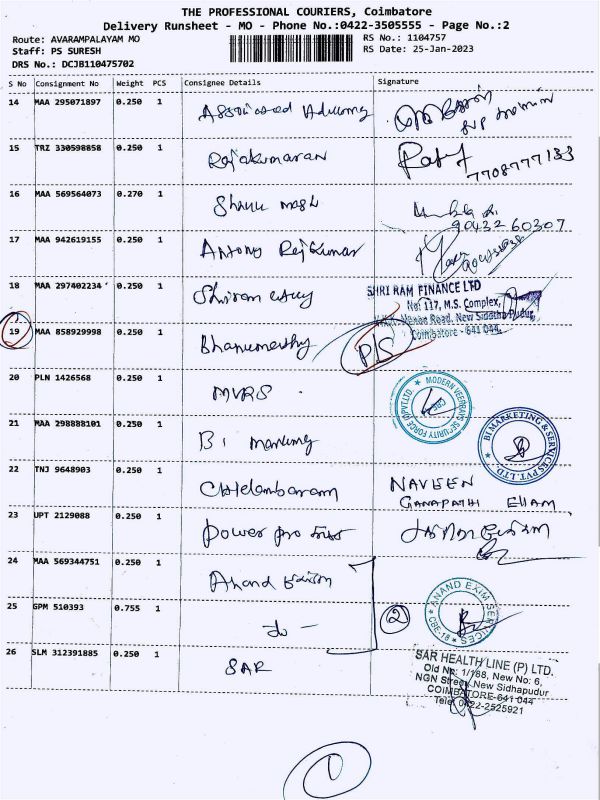 THE PROFESSIONAL COURIERS, Coimbatore
Delivery Runsheet - MO - Phone No.:0422-3505555 - Page No.:2
Route: AVARAMPALAYAM MO
RS No.: 1104757
Staff: PS SURESH
RS Date: 25-Jan-2023
DRS No.: DCJB110475702
S No Consignment No Weight PCS Consignee Details Signature
14 MAA 295071897 0.250 1
15 TRZ 330598858 0.250 1 Rajakumaran
7708777133
16 MAA 569564073 0.270 1
90432 60307
17 MAA 942619155 0.250 1 Antony Rajkumar
18 MAA 297402234 0.250 1 Shriram
SHRI RAM FINANCE LTD
No: 117, M.S. Complex,
Nanan Road, New Siddha Pudur,
Coimbatore - 641 044.
19 MAA 858929998 0.250 1 Bhanumathy P/S
20 PLN 1426568 0.250 1 MVRS
MODERN VEERRANS SECURITY FORCE (I) PVT.LTD. CBE
21 MAA 298888101 0.250 1 B1
BI MARKETING & SERVICES PVT. LTD.
22 TNJ 9648903 0.250 1 NAVEEN
GANAPATHI
23 UPT 2129088 0.250 1 Power pro
24 MAA 569344751 0.250 1 Anand
25 GPM 510393 0.755 1
2
ANAND EXIM SERVICES CBE-18
26 SLM 312391885 0.250 1 SAR
SAR HEALTH LINE (P) LTD.
Old No: 1/188, New No: 6,
NGN Street, New Sidhapudur
COIMBATORE-641 044
Tele: 0422-2525921
1